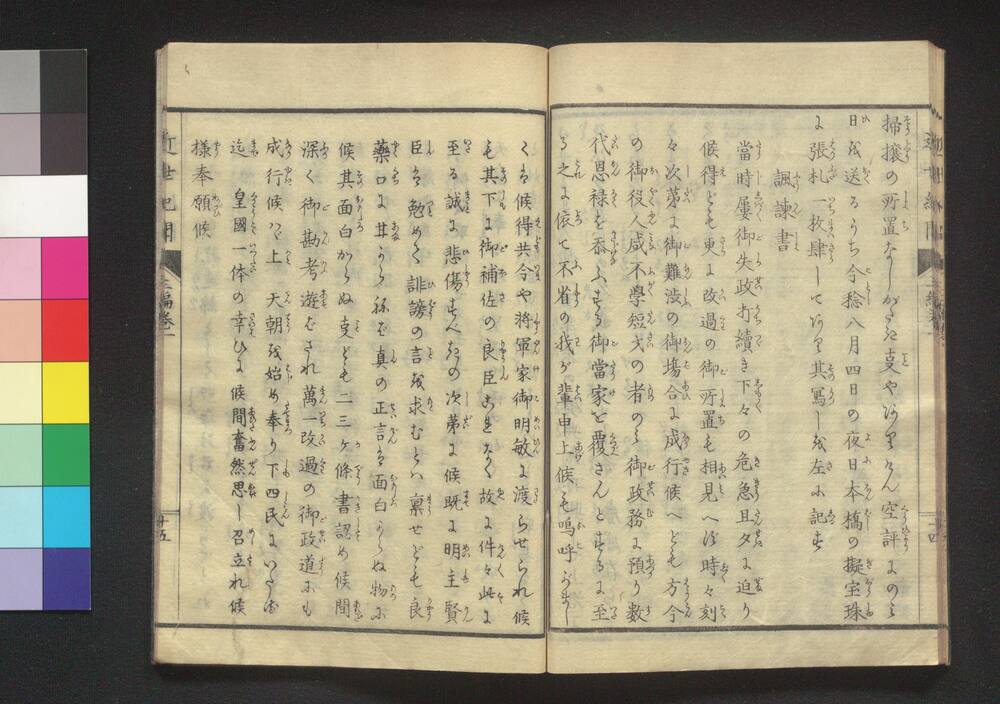 掃攘の所置なしがたき叓や有けん空評にのミ
日を送るうち今稔八月四日の夜日本橋の擬宝珠
に張札一枚肆して有其写しを左に記す
諷諫書
當時屢御失政打續き下々の危急旦夕に迫り
候得とも更に改過の御所置も相見へず時々刻
々次第に御難渋の御場合に成行候へども方今
の御役人咸不學短才の者のミ御政務に預り数
代恩禄を忝ふする御當家を覆さんとするに至
る之に依て不省の我が輩申上候も嗚呼がまし
く候得共今や将軍家御明敏に渡らせられ候
も其下に御補佐の良臣これなく故に件々此に
至る誠に悲傷すべきの次第に候既に明主賢
臣は勉めて誹謗の言を求むとハ稟せども良
藥口に甘からず真の正言は面白からぬ物に
候其面白からぬ叓ども二三ヶ條書認め候間
深く御勘考遊ばされ萬一改過の御政道にも
成行候ハヾ上 天朝を始め奉り下四民にいたる
迄 皇國一体の幸ひに候間奮然思し召立れ候
様奉願候
近世紀聞
三編巻一
廿五